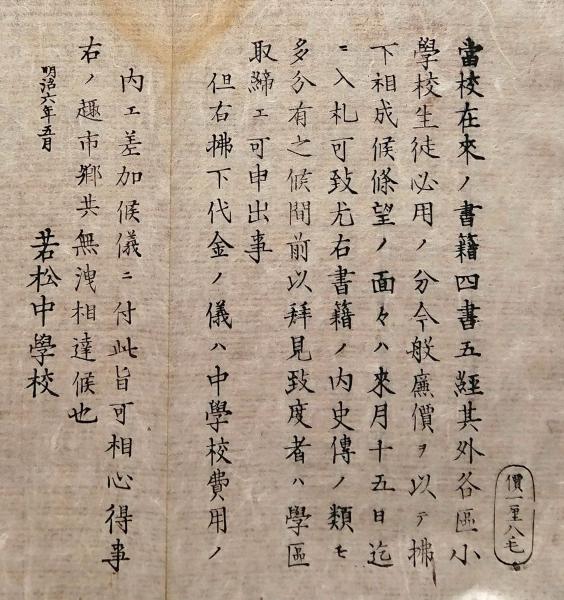 當校在來ノ書籍四書五經其外各區小
學校生徒必用ノ分今般廉價ヲ以テ拂
下相成候條望ノ面々ハ來月十五日迄
ニ入札可致尤右書籍ノ内史傳ノ類モ
多分有之候間前以拜見致度者ハ學區
取締エ可申出事
但右拂下代金ノ儀ハ中學校費用ノ
内エ差加候儀ニ付此旨可相心得事
右ノ趣市鄉共無洩相達候也
明治六年五月
若松中學校
價一厘八毛